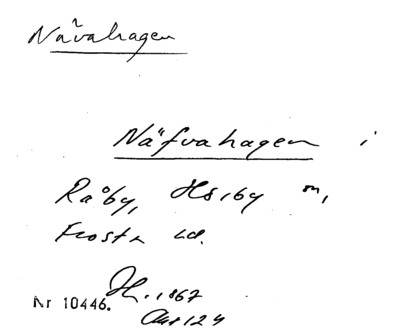 Nävahagen
Näfvahagen i
Råby, Hörby sn,
Frosta hd.
Nr 10446. H. 1867
Akt 124